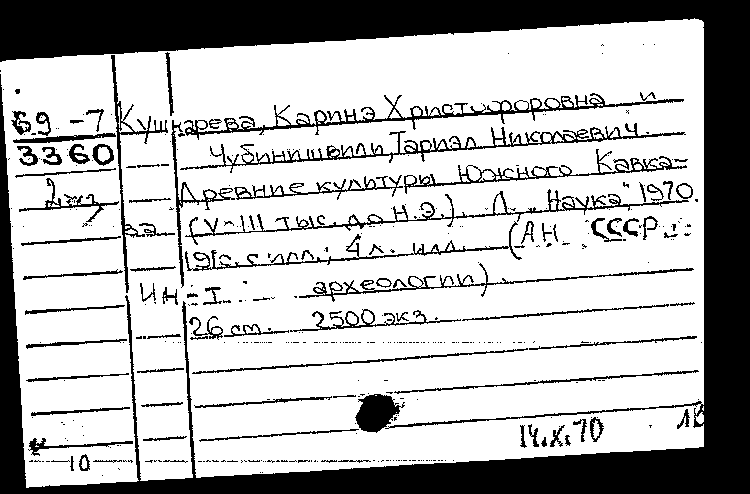 69-7 Кушнарева, Каринэ Христофоровна и
3360 Чубинишвили, Тариэл Николаевич.
2 экз Древние культуры Южного Кавка=
за (V-III тыс. до н.э.). Л., „Наука", 1970.
191с. с илл.; 4 л. илл. (АН СССР.
Ин-т археологии).
26 см. 2500 экз.
14.X.70
10